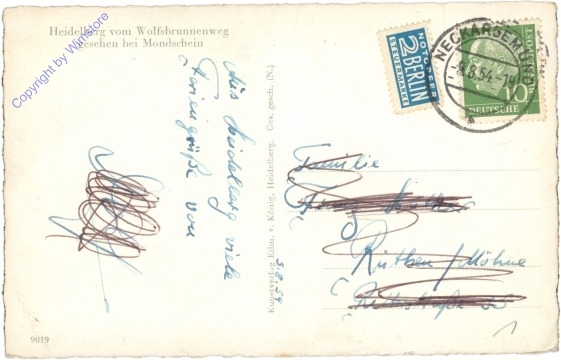 Heidelberg vom Wolfsbrunnenweg
gesehen bei Mondschein
Copyright by WimStore
Aus Heidelberg viele
Feriengrüße von
5.8.54
Kunstverlag Edm. v. König, Heidelberg. Ges. gesch. (N.)
NOTOPFER
2 BERLIN
STEUERMARKE
NECKARGEMÜND
-8.54-
10
DEUTSCHE
Familie
Rüthen/Möhne
9019